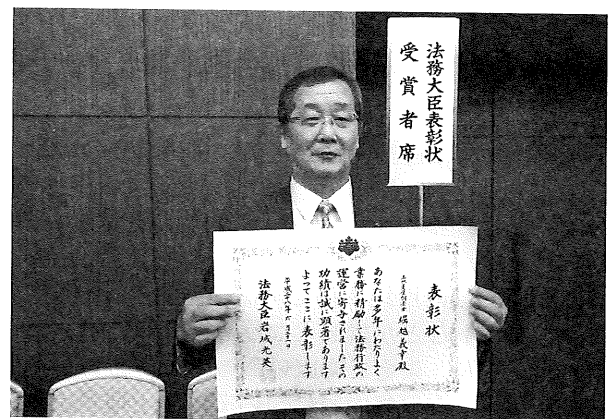 法務大臣表彰状
受賞者席
表彰状
堀越義幸殿
あなたは多年にわたりよく
業務に精励して法務行政の
運営に寄与されましたその
功績は誠に顕著であります
よってここに表彰します
法務大臣岩城光英